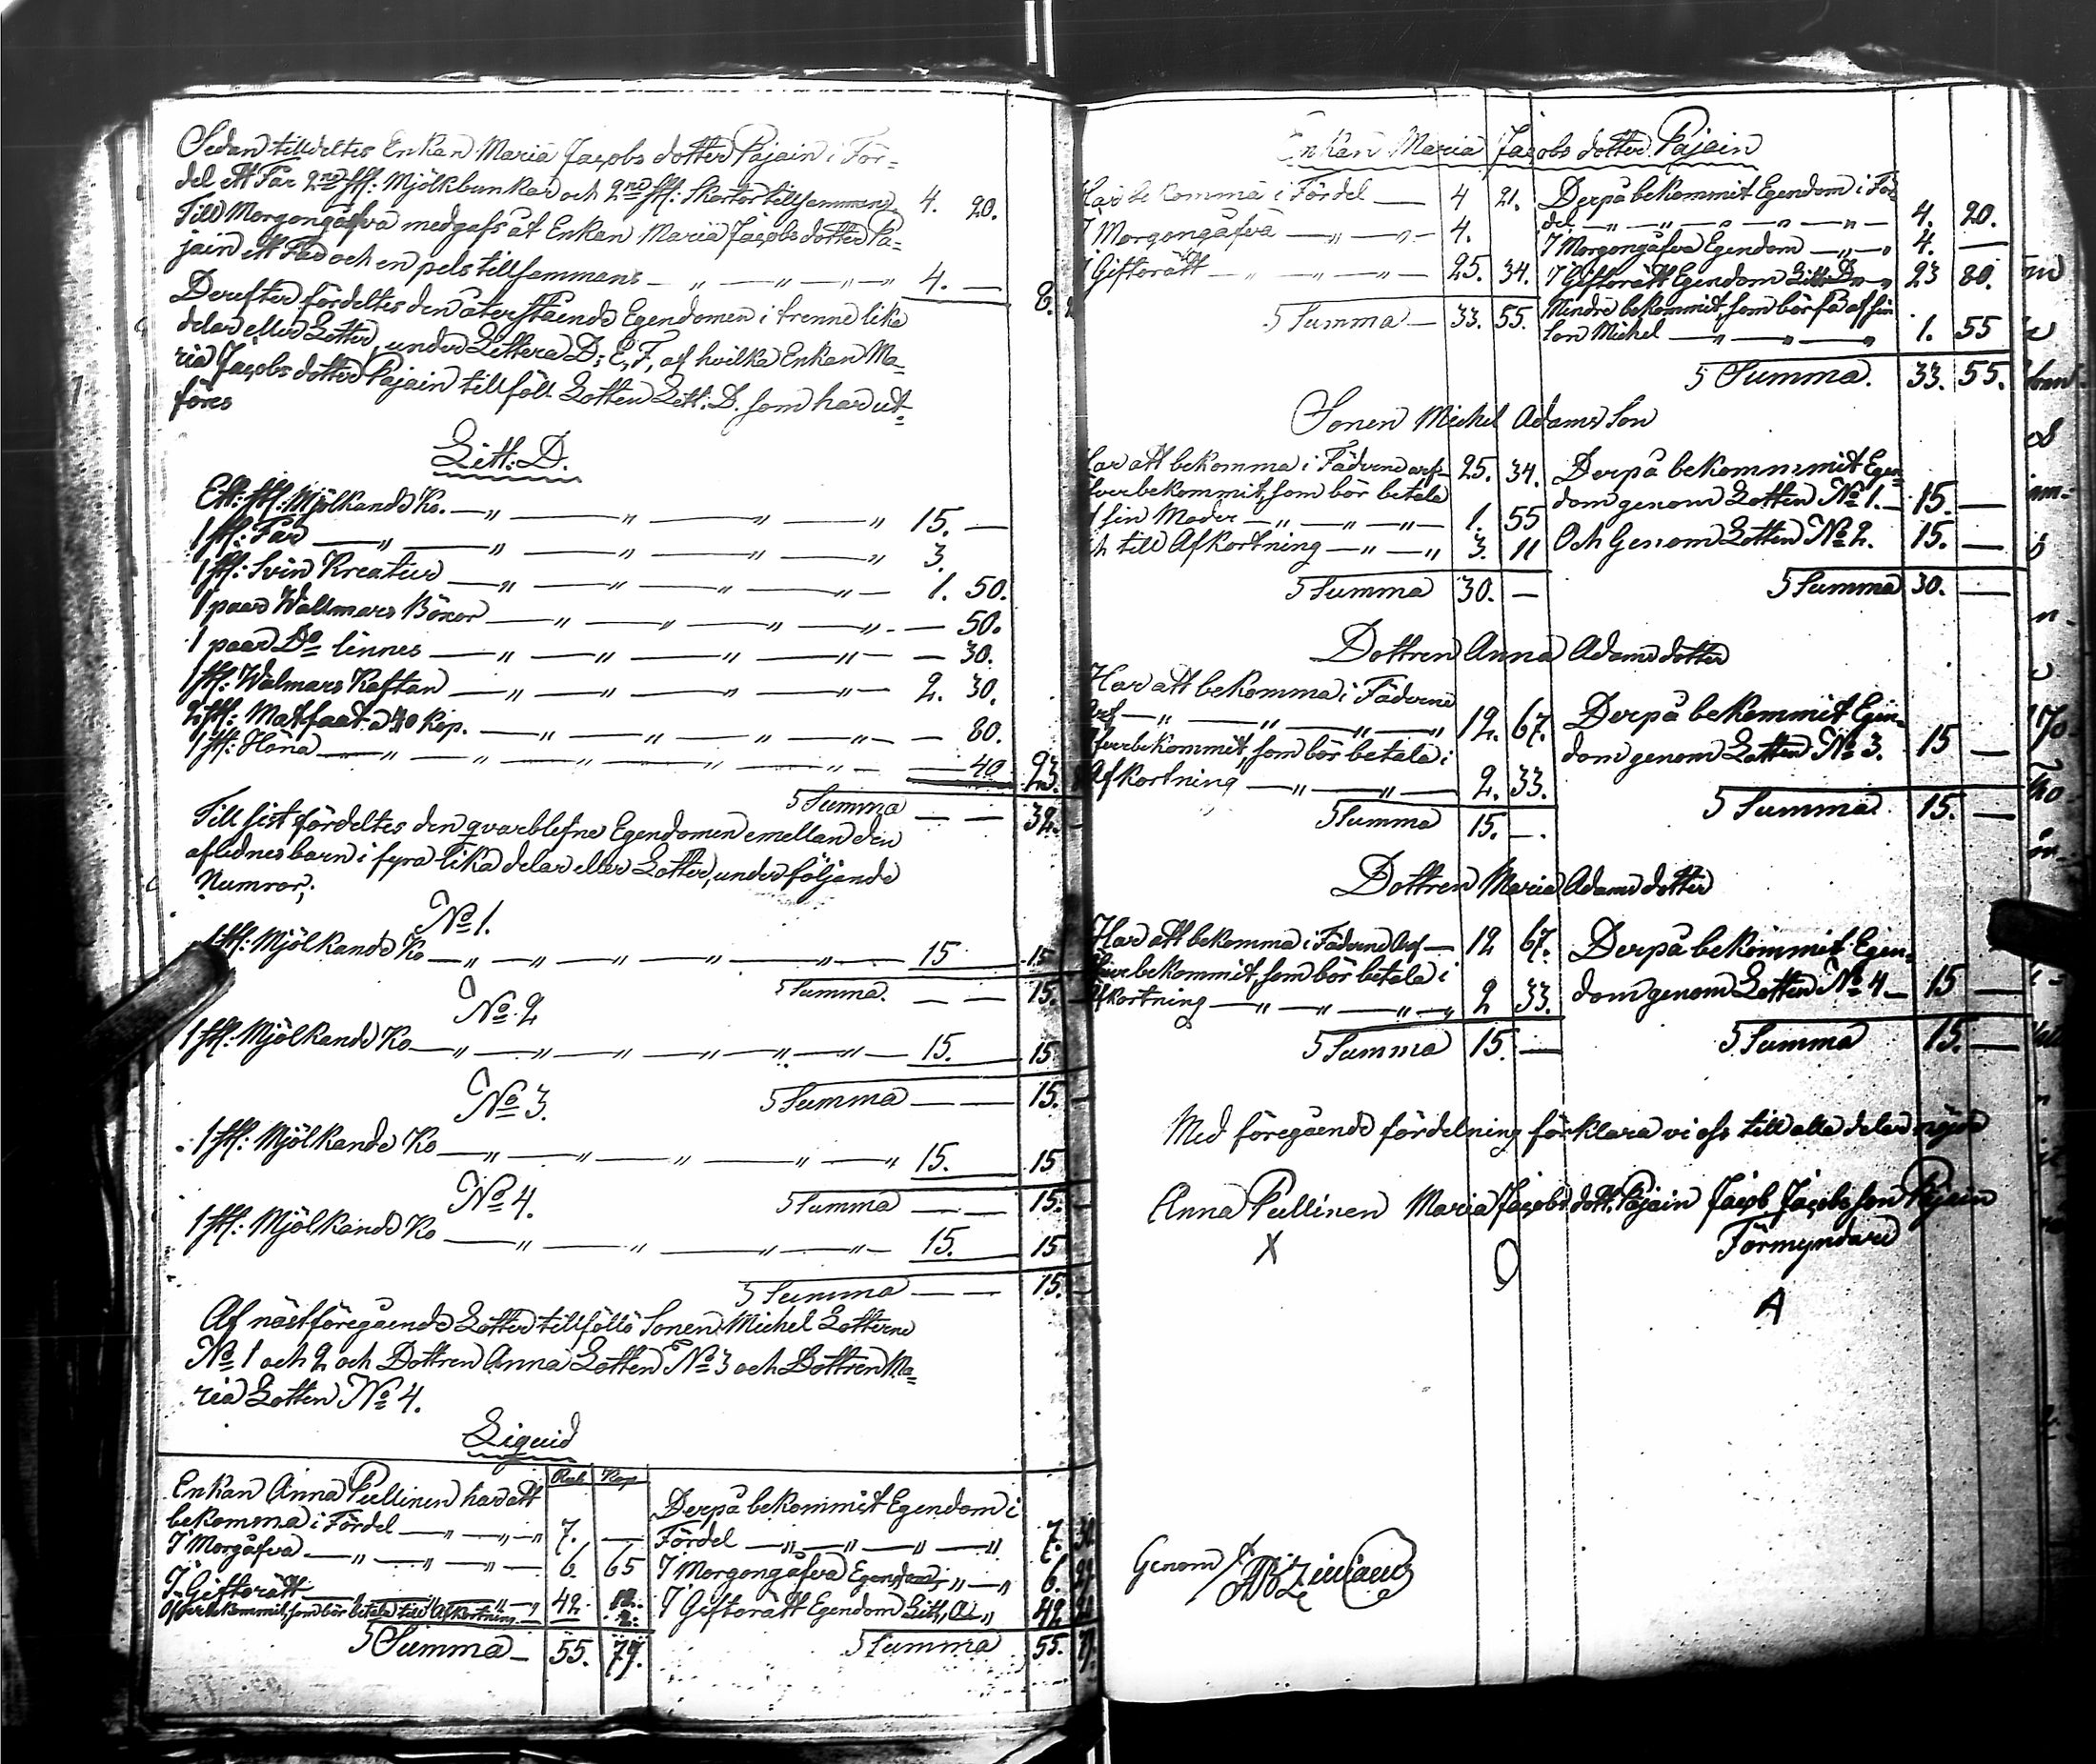 Sedan tilldeltes Enkan Maria Jacobs dotter Pajain i För=
del ett Får 2ne st: Mjölkbunkar och 2ne st: Skortor tillsamman 4. 20.
Till Morgongåfva medgafs åt Enkan Maria Jacobs dotter Pa=
jain ett Fad och en pels tillsammans — „ — „ — „ 4. — 8.
Derefter fördeltes den återstående Egendomen i trenne lika
delar eller Lotter, under Littera D; E, F, af hvilka Enkan Ma=
ria Jacobs dotter Pajain tillföll Lotten Litt: D. som har ut=
föres
Litt: D.
Ett st: Mjölkande Ko. — „ — „ — „ — „ 15. —
1 st: Får — „ — „ — „ — „ — „ 3.
1 st: Svin Kreatur — „ — „ — „ — „ — 1. 50.
1 paar Wallmars Böxor — „ — „ — „ — „ — 50.
1 paar Do linnes — „ — „ — „ — „ — 30.
1 st: Walmars Kaftan — „ — „ — „ — „ — 2. 30.
2 st: Matfaat a 40 Kop. — „ — „ — „ — „ — 80.
1 st: Höna — „ — „ — „ — „ — „ — 40 23.
Summa — — 32.
Till sist fördeltes den qvarblefne Egendomen emellan den
aflednes barn i fyra lika delar eller Lotter, under följande
Numror;
No 1.
1 st: Mjölkande Ko — „ — „ — „ — „ — 15 15
Summa. — — 15.
No 2
1 st: Mjölkande Ko — „ — „ — „ — „ — „ — 15. 15
Summa — — 15.
No 3.
1 st: Mjölkande Ko — „ — „ — „ — „ — „ 15. 15
Summa — — 15.
No 4.
1 st: Mjölkande Ko — „ — „ — „ — „ — 15. 15
Summa — — 15.
Af nästföregående Lotter tillföllo Sonen Michel Lotterne
No 1 och 2 och Dottren Anna Lotten No 3 och Dottren Ma=
ria Lotten No 4.
Liquid
Rub Kop
Enkan Anna Pullinen har att
bekomma i Fördel — „ — „ 7. —
I Morgåfva — „ — „ — „ — 6. 65
I Giftorätt — „ — „ 42
Öfverbekommit, som bör betala till Afkortning
Summa — 55. 77.
Derpå bekommit Egendom i
Fördel — „ — „ — „ — „ 7. 30.
I Morgongåfva Egendom „ — „ 6.
I Giftorätt Egendom Litt, A „ 42
Summa 55.
Enkan Maria Jacobs dotter Pajain
Har bekomma i Fördel — 4 21.
I Morgongåfva — „ — „ — 4.
I Giftorätt — „ — „ — „ — 25. 34.
Summa — 33. 55.
Derpå bekommit Egendom i För=
del — „ — „ — „ — „ — „ — 4. 20.
I Morgongåfva Egendom — „ — „ 4. —
I Giftorätt Egendom Litt: D — „ 23 80.
Mindre bekommit, som bör få af sin
Son Michel — „ — „ — „ 1. 55
Summa. 33. 55.
Sonen Michel Adams Son
Har att bekomma i Fäderne arf — 25. 34.
Öfverbekommit, som bör betala
sin Moder — „ — „ — „ — 1. 55
och till Afkortning — „ — „ 3. 11
Summa 30. —
Derpå bekommit Egen=
dom genom Lotten No 1. — 15. —
Och Genom Lotten No 2. 15. —
Summa 30. —
Dottren Anna Adams dotter
Har att bekomma i Fäderne
Arf — „ — „ — „ — „ 12. 67.
Öfverbekommit, som bör betala i
Afkortning — „ — „ — 2. 33.
Summa 15. —.
Derpå bekommit Egen=
dom genom Lotten No 3. 15 —
Summa 15. —
Dottren Maria Adams dotter
Har att bekomma i Fäderne Arf — 12 67.
Öfverbekommit, som bör betala i
Afkortning — „ — „ — „ — „ 2 33.
Summa 15. —
Derpå bekommit Egen=
dom genom Lotten No 4 — 15 —
Summa 15. —
Med föregående fördelning förklara vi oss till alla delar nöjde
Anna Pullinen Maria Jacobs dott. Pajain Jacob Jacobsson Pajain
Förmyndare
X O A
Genom